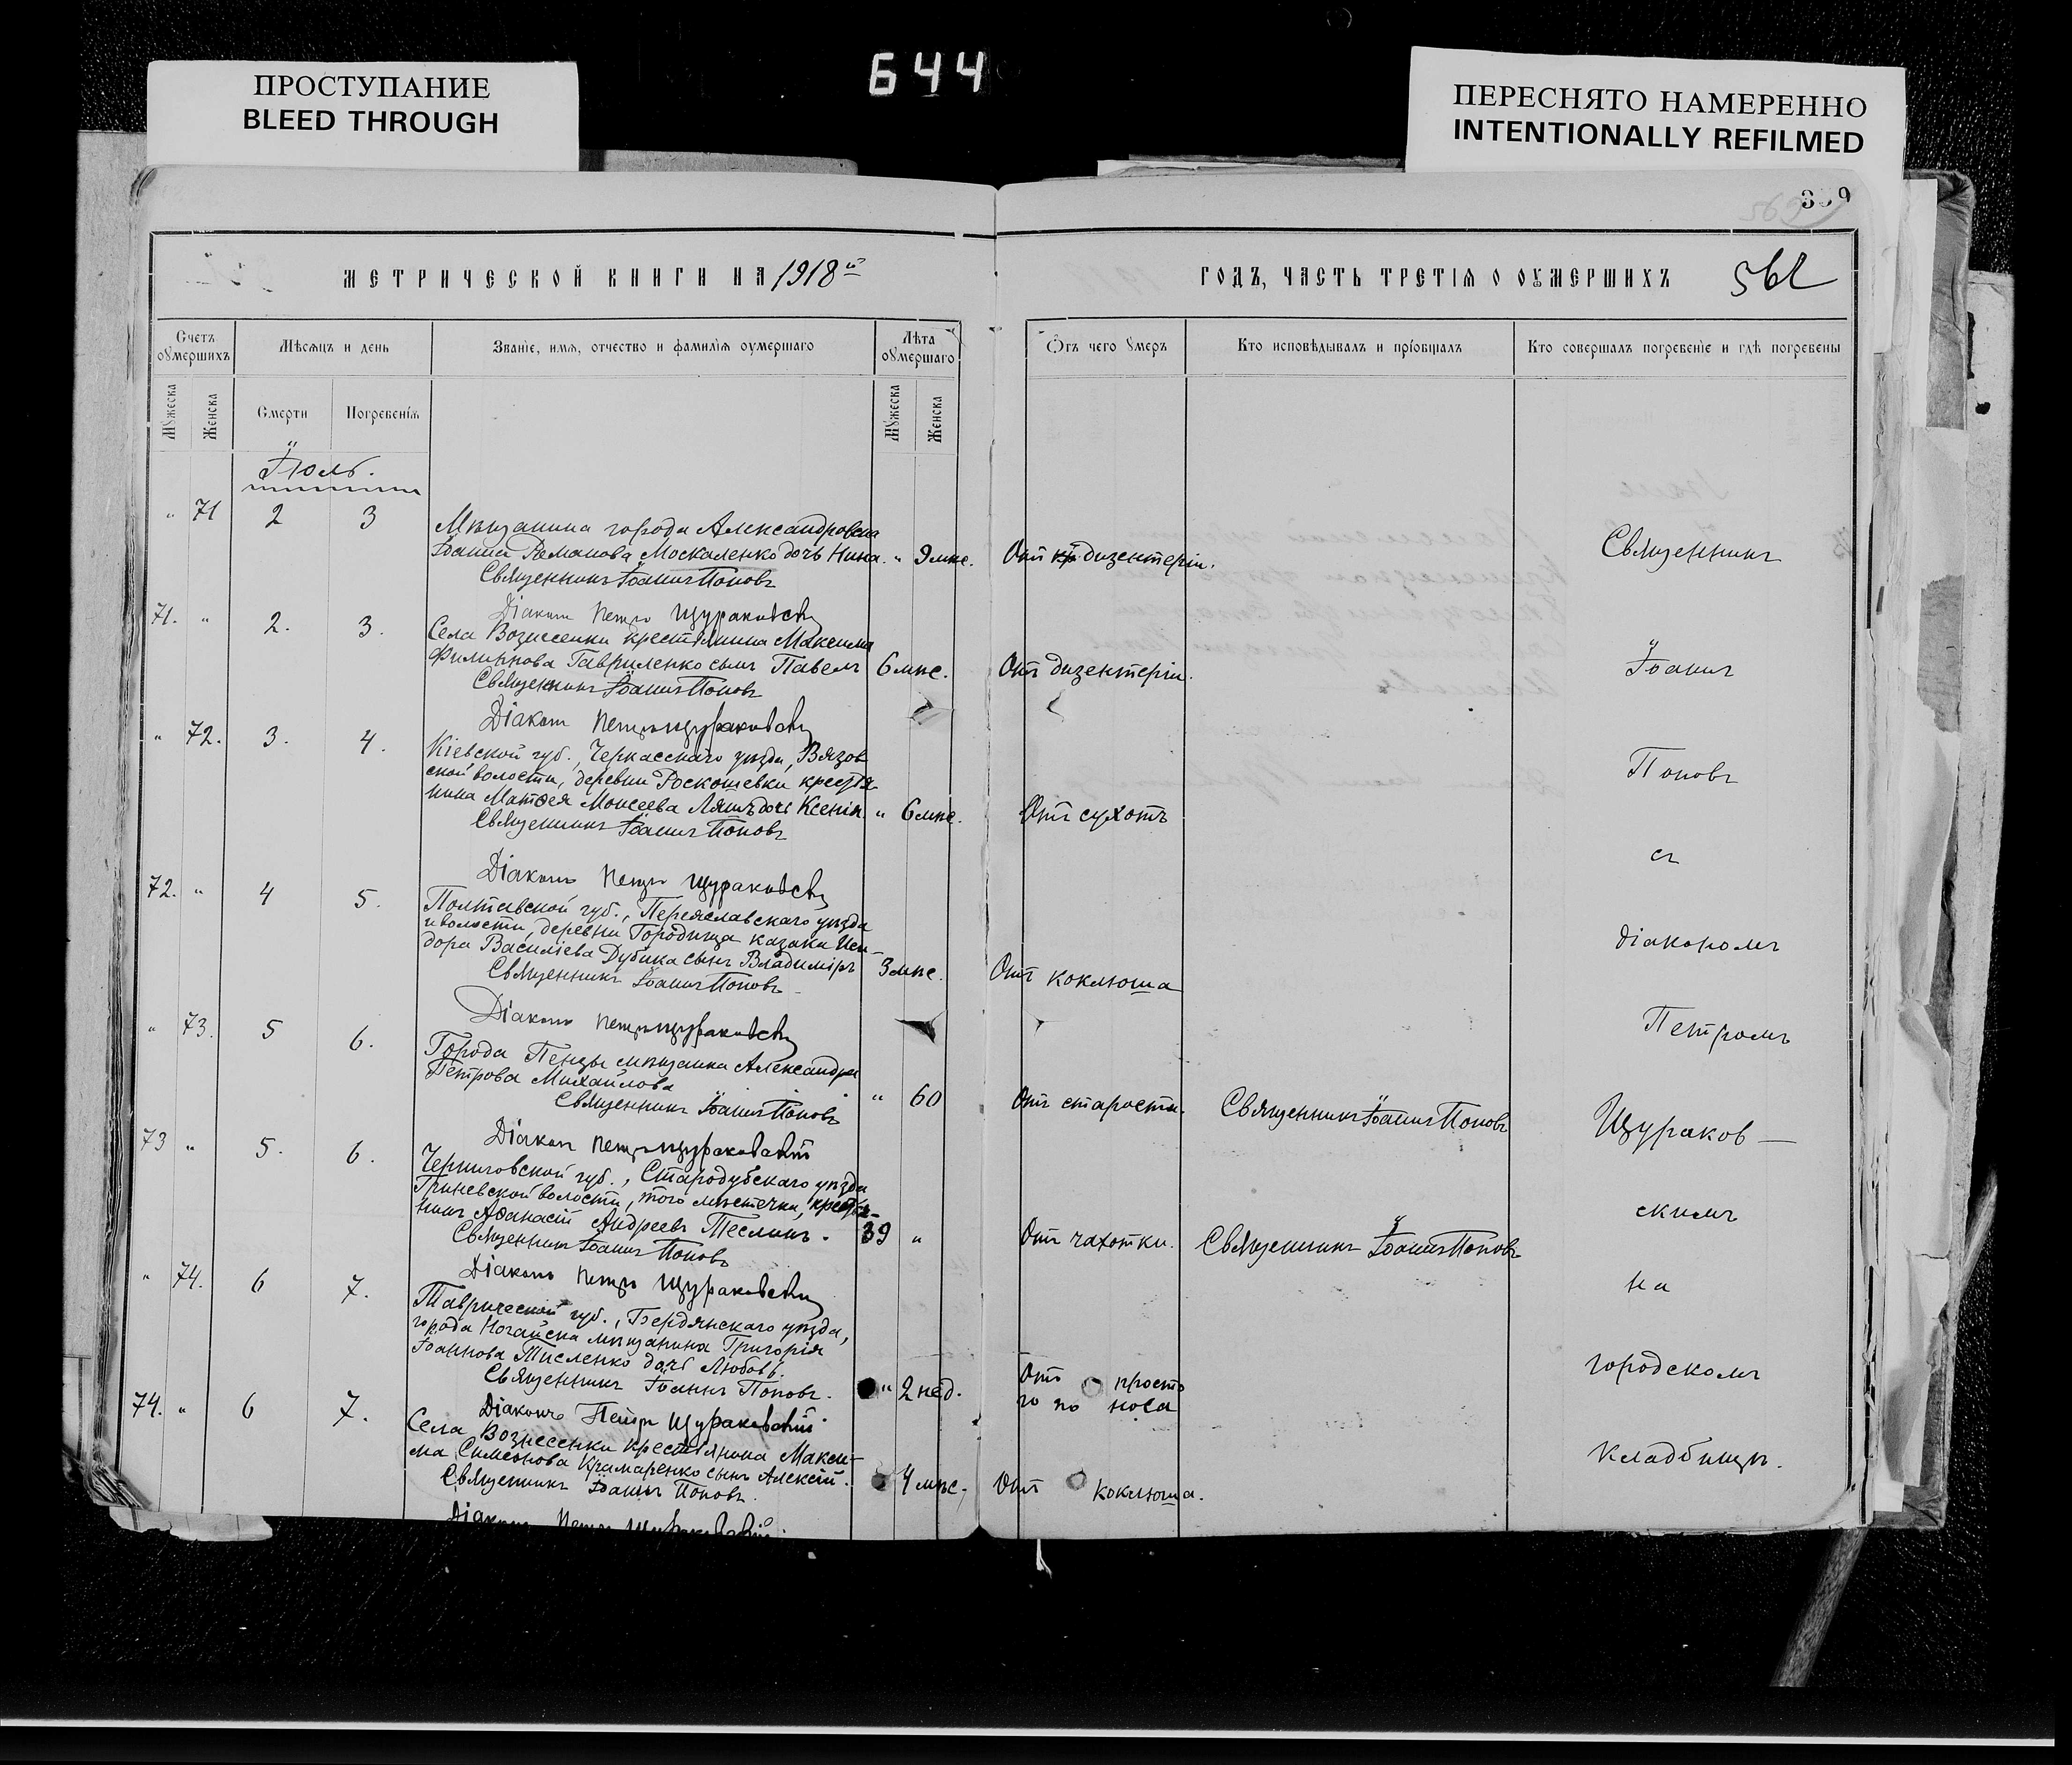 644
ПРОСТУПАНИЕ
BLEED THROUGH
ПЕРЕСНЯТО НАМЕРЕННО
INTENTIONALLY REFILMED
МЕТРИЧЕСКОЙ КНИГИ НА 1918й
ГОДЪ, ЧАСТЬ ТРЕТІЯ О ОУМЕРШИХЪ
Счетъ оумершихъ
Мѣсяцъ и день
Званіе, имя, отчество и фамилія оумершаго
Лѣта оумершаго
Отъ чего умеръ
Кто исповѣдывалъ и пріобщалъ
Кто совершалъ погребеніе и гдѣ погребены
Мужеска
Женска
Смерти
Погребенія
Мужеска
Женска
Іюль.
" 71 2 3
Мѣщанина города Александровска
Іоанна Романова Москаленко дочь Нина. " 9 мѣс. Отъ дизентеріи.
Священникъ Іоаннъ Поповъ
Діаконъ Петръ Щураковскій
71. " 2. 3.
Села Вознесенки крестьянина Максима
Филиппова Гавриленко сынъ Павелъ 6 мѣс. Отъ дизентеріи.
Священникъ Іоаннъ Поповъ
Діаконъ Петръ Щураковскій
" 72. 3. 4.
Кіевской губ., Черкасскаго уѣзда, Вязов
ской волости, деревни Роскошевки крестья
нина Матѳея Моисеева Ляшъ дочь Ксенія. " 6 мѣс. Отъ сухотъ
Священникъ Іоаннъ Поповъ
Діаконъ Петръ Щураковскій
72. " 4 5.
Полтавской губ., Переяславскаго уѣзда
и волости, деревни Городища казака Иси-
дора Василіева Дубика сынъ Владиміръ 3 мѣс. Отъ коклюша
Священникъ Іоаннъ Поповъ
Діаконъ Петръ Щураковскій
" 73. 5 6.
Города Пензы мѣщанка Александра
Петрова Михайлова " 60 Отъ старости. Священникъ Іоаннъ Поповъ
Священникъ Іоаннъ Поповъ
Діаконъ Петръ Щураковскій
73 " 5. 6.
Черниговской губ., Стародубскаго уѣзда
Гриневской волости, того мѣстечка, крестья-
нинъ Аѳанасій Андреевъ Теслинъ. 39 " Отъ чахотки. Священникъ Іоаннъ Поповъ
Священникъ Іоаннъ Поповъ
Діаконъ Петръ Щураковскій
" 74. 6 7.
Таврической губ., Бердянскаго уѣзда,
города Ногайска мѣщанина Григорія
Іоаннова Тисленко дочь Любовь.
Священникъ Іоаннъ Поповъ. " 2 нед. Отъ просто
го по носа
Діаконъ Петръ Щураковскій.
74. " 6 7.
Села Вознесенки крестьянина Макси-
ма Симеонова Крамаренко сынъ Алексій.
Священникъ Іоаннъ Поповъ. 4 мѣс. Отъ коклюша.
Діаконъ Петръ Щураковскій.
Священникъ
Іоаннъ
Поповъ
съ
діакономъ
Петромъ
Щураков—
скимъ
на
городскомъ
кладбищѣ.